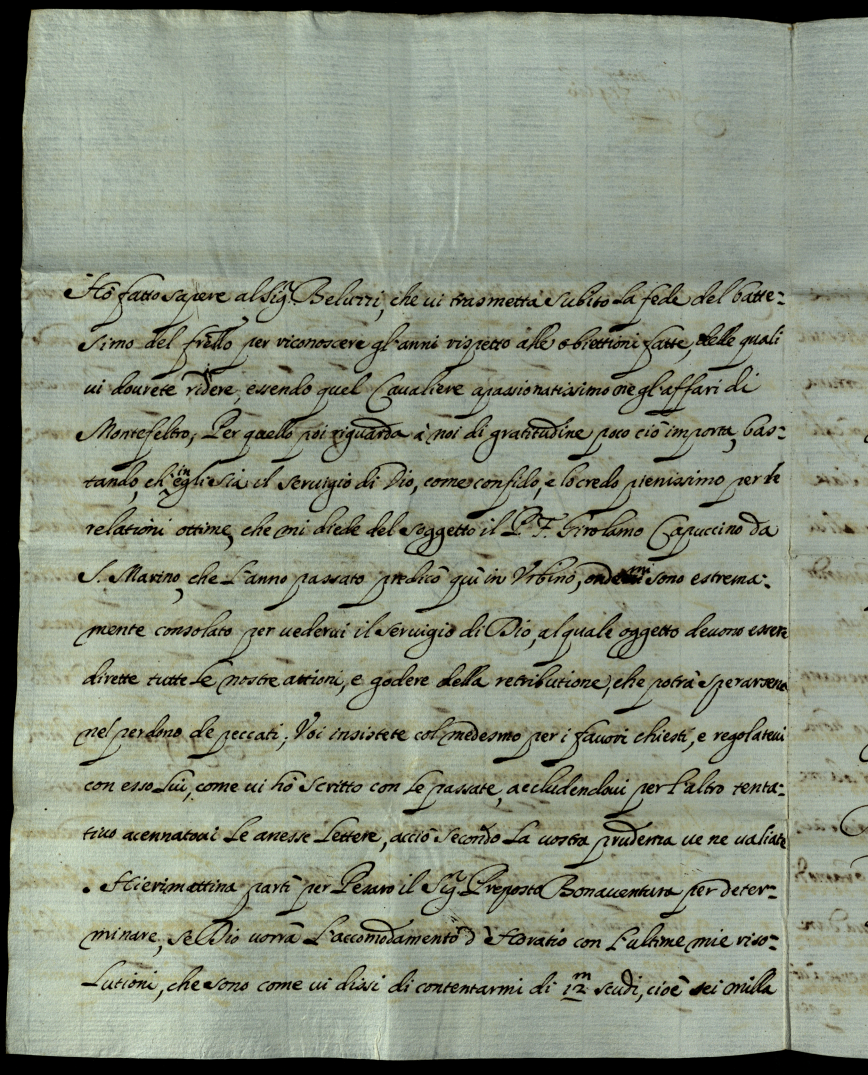 Hò fatto sapere al Sig.r Beluzzi, che vi trasmetta subito la fede del batte-
simo del frêllo per riconoscere gl'anni rispetto alle obiettioni fatte, delle quali
vi dovrete ridere, essendo quel Cavaliere apassionatissimo negl'affari di
Montefeltro; Per quello poi riguarda à noi di gratitudine poco ciò importa, bas-
tando, ch'egli in sia il servigio di Dio, come confido, e lo credo pienissimo per le
relationi ottime, che mi diede del soggetto il P. F. Girolamo Capuccino da
S. Marino, che l'anno passato predicò quì in Urbino, onde mi sono estrema-
mente consolato per vedervi il servigio di Dio, al quale oggetto devono essere
dirette tutte le nostre attioni, e godere della retributione, che potrà sperarsene
nel perdono de peccati; Voi insistete col medesmo per i favori chiesti, e regolatevi
con esso lui, come vi hò scritto con le passate, accludendovi per l'altro tenta-
tivo acennatovi le anesse lettere, acciò secondo la vostra prudenza ve ne valiate
. Hierimattina partì per Pesaro il Sig.r Preposto Bonaventura per deter-
minare, se Dio vorrà l'accomodamento d'Horatio con l'ultime mie riso-
lutioni, che sono come vi dissi di contentarmi di 12m scudi, cioè sei milla